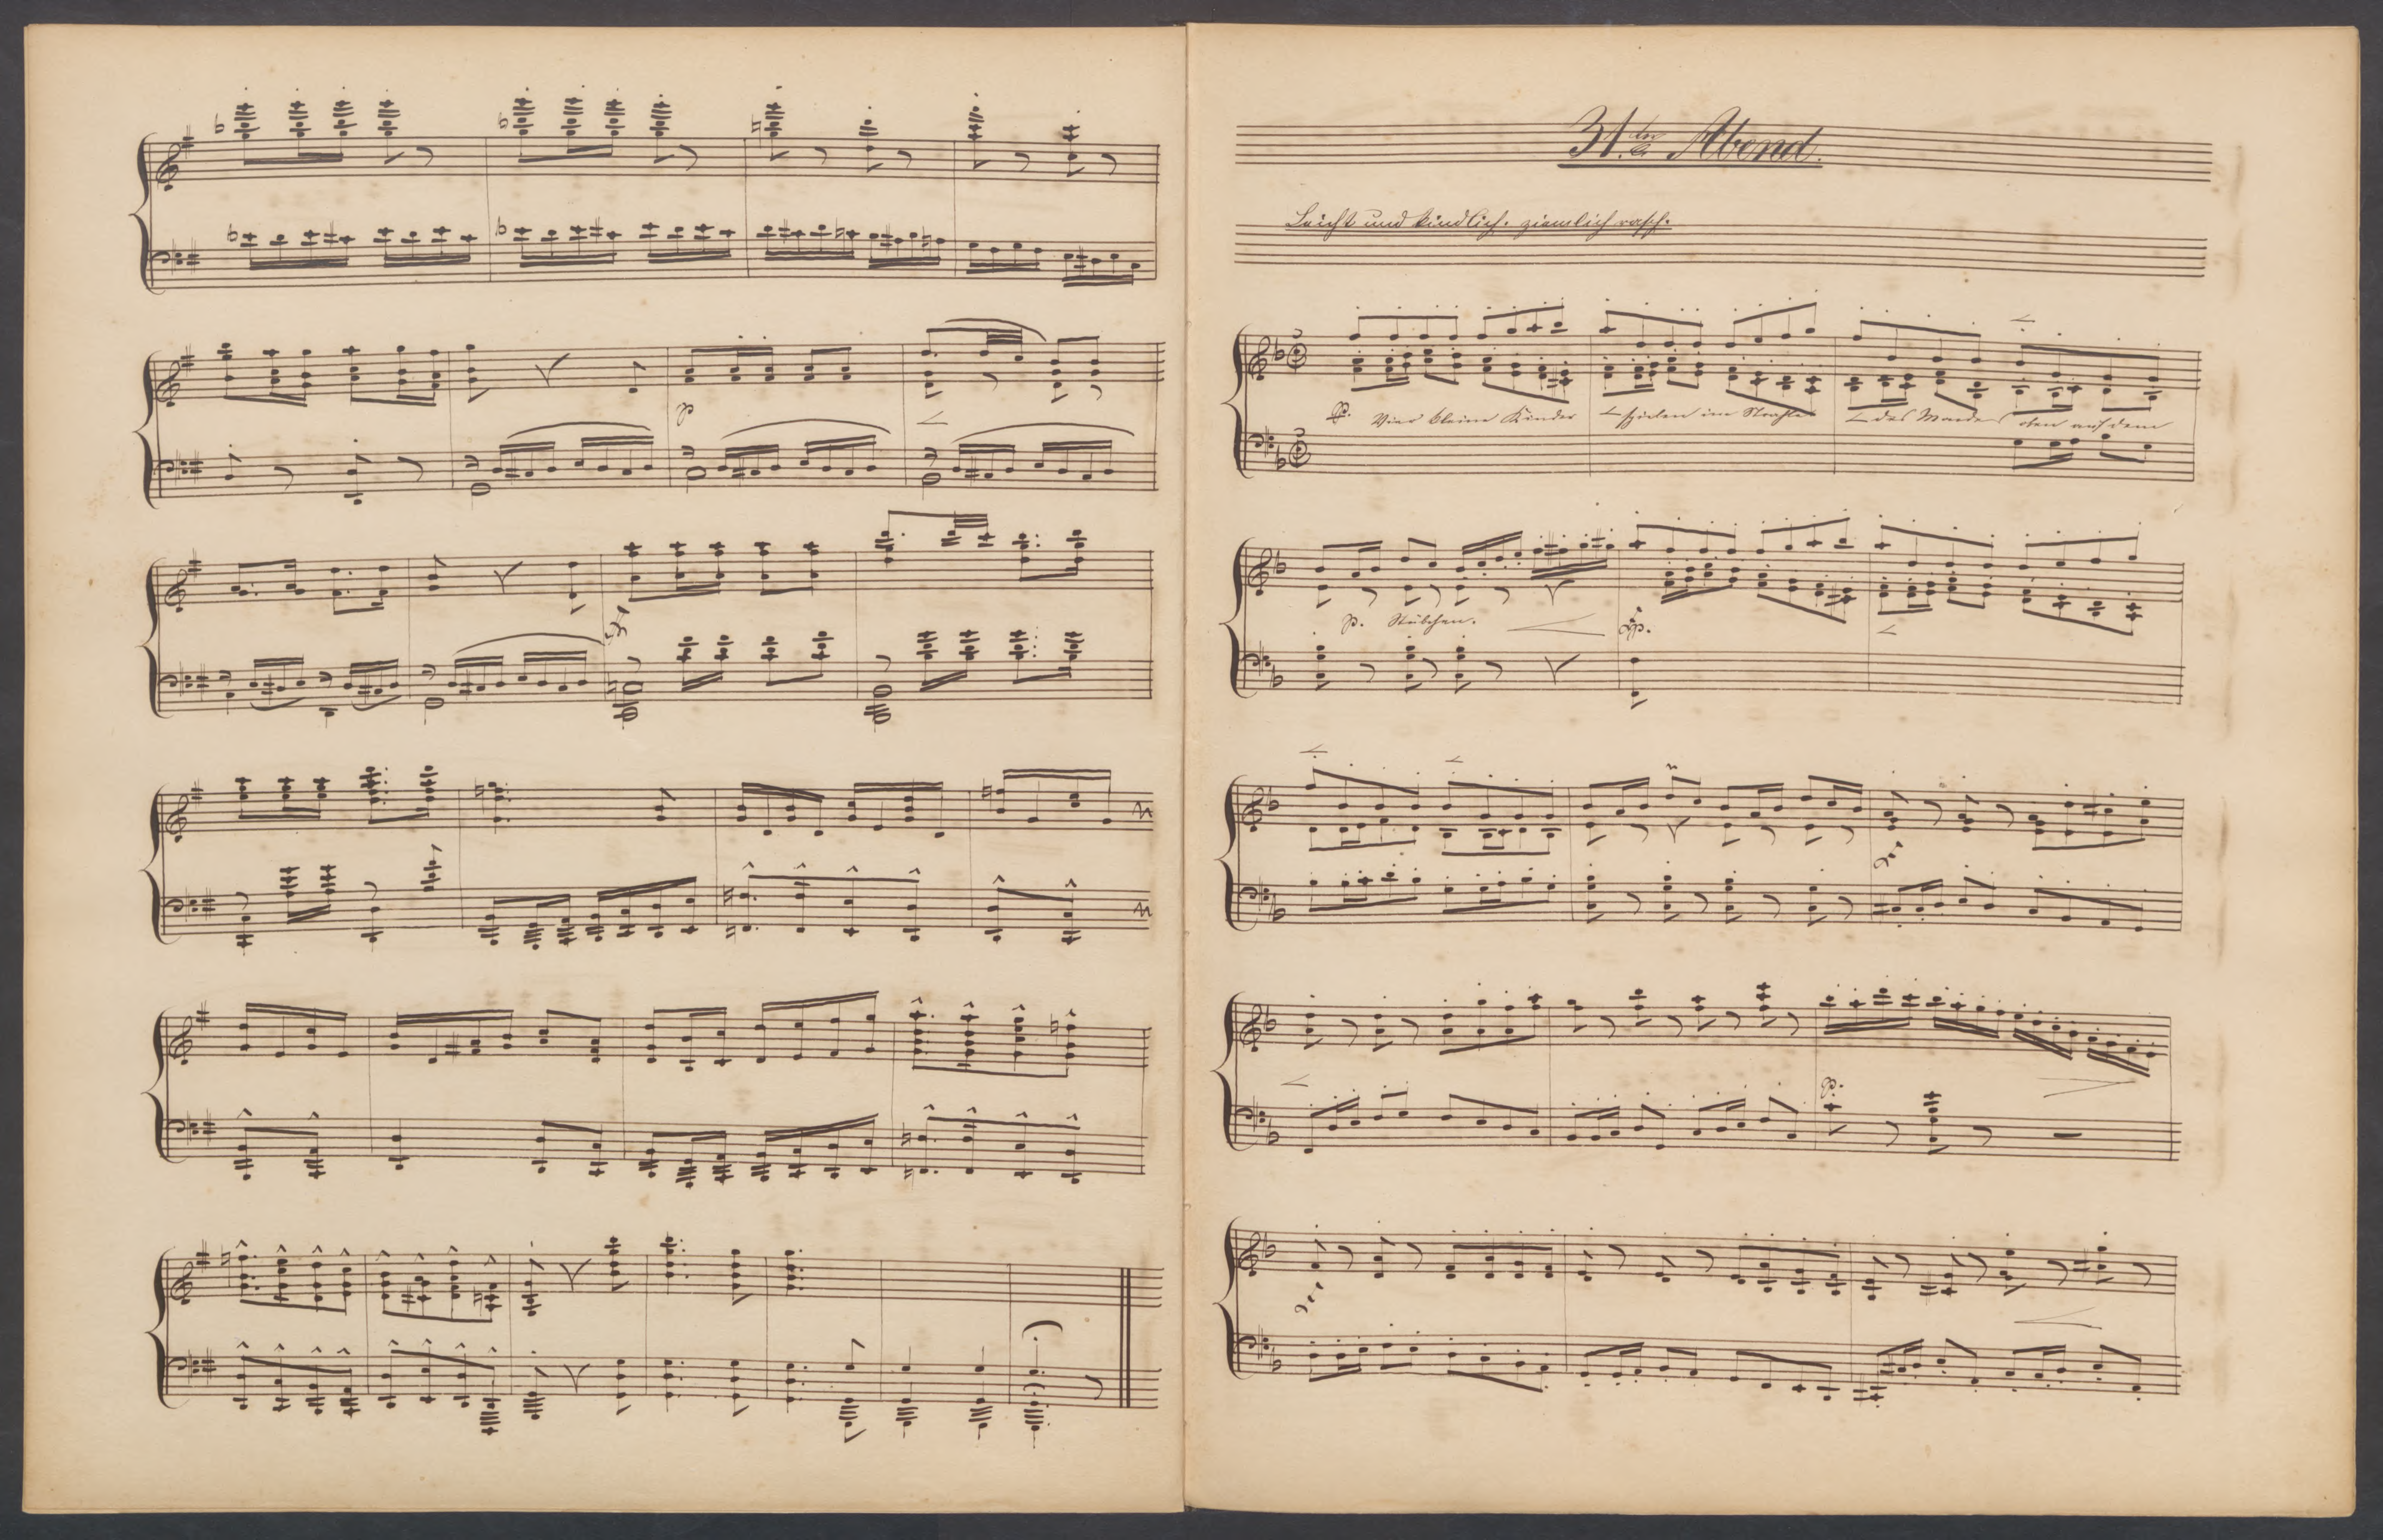 31.ter Abend.
Leicht und kindlich. ziemlich rasch.
p. Vier kleine Kinder spielen im Strahle des Mondes oben auf dem
p. Stübchen.